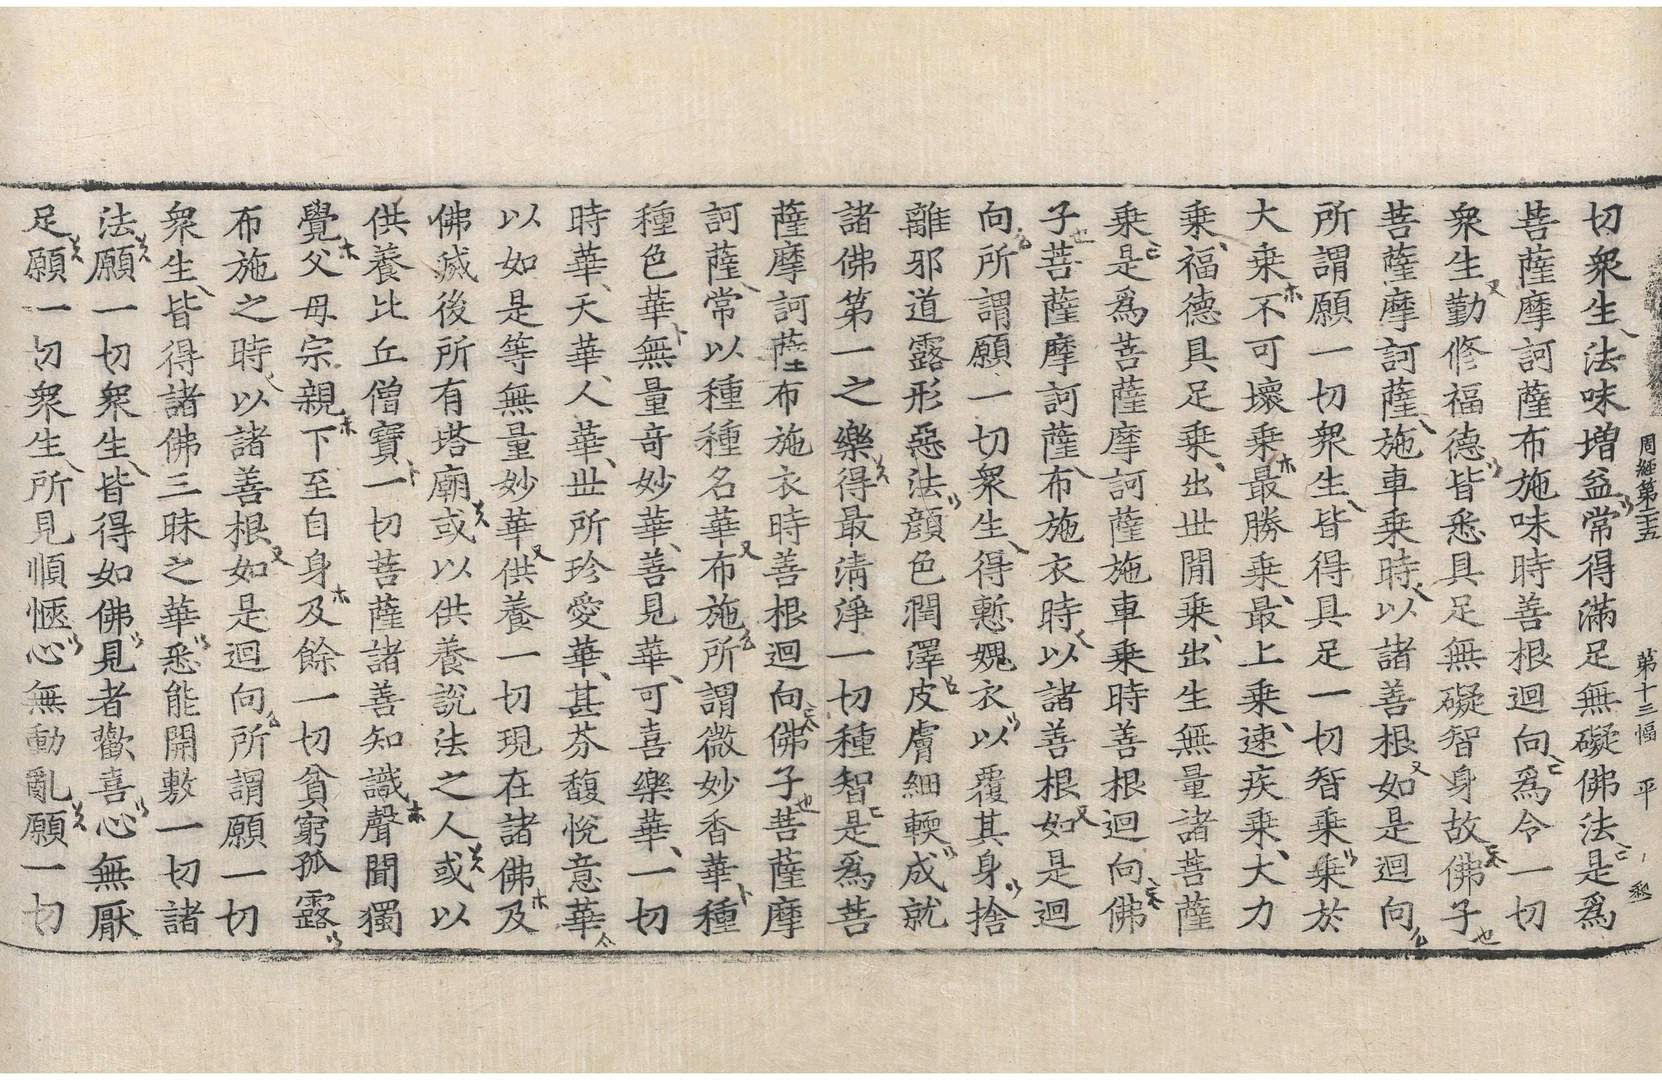 周經第二十五　第十三幅　平
切衆生法味增益常得滿足無礙佛法是爲
菩薩摩訶薩布施味時善根迴向爲令一切
衆生勤修福德皆悉具足無礙智身故佛子
菩薩摩訶薩施車乘時以諸善根如是迴向
所謂願一切衆生皆得具足一切智乘乘於
大乘不可壞乘最勝乘最上乘速疾乘大力
乘福德具足乘出世閒乘出生無量諸菩薩
乘是爲菩薩摩訶薩施車乘時善根迴向佛
子菩薩摩訶薩布施衣時以諸善根如是迴
向所謂願一切衆生得慙媿衣以覆其身捨
離邪道露形惡法顔色潤澤皮膚細輭成就
諸佛第一之樂得最清淨一切種智是爲菩
薩摩訶薩布施衣時善根迴向佛子菩薩摩
訶薩常以種種名華布施所謂微妙香華種
種色華無量奇妙華善見華可喜樂華一切
時華天華人華世所珍愛華甚芬馥悅意華
以如是等無量妙華供養一切現在諸佛及
佛滅後所有塔廟或以供養說法之人或以
供養比丘僧寶一切菩薩諸善知識聲聞獨
覺父母宗親下至自身及餘一切貧窮孤露
布施之時以諸善根如是迴向所謂願一切
衆生皆得諸佛三昧之華悉能開敷一切諸
法願一切衆生皆得如佛見者歡喜心無厭
足願一切衆生所見順愜心無動亂願一切